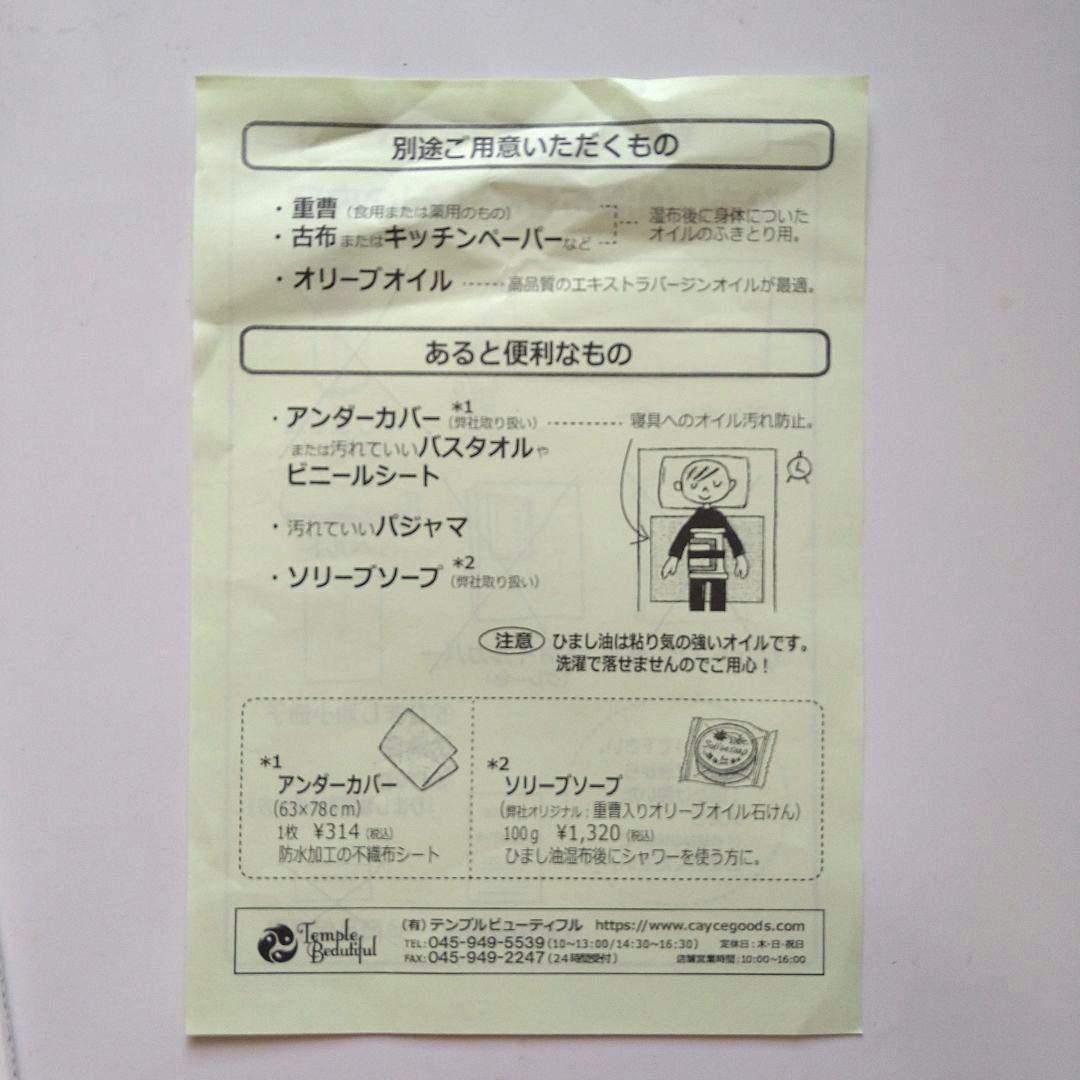 別途ご用意いただくもの
・重曹(食用または薬用のもの)
・古布またはキッチンペーパーなど
湿布後に身体についた
オイルのふきとり用。
・オリーブオイル ……高品質のエキストラバージンオイルが最適。
あると便利なもの
・アンダーカバー *1(弊社取り扱い)………寝具へのオイル汚れ防止。
または汚れていいバスタオルや
ビニールシート
・汚れていいパジャマ
・ソリーブソープ *2(弊社取り扱い)
注意 ひまし油は粘り気の強いオイルです。
洗濯で落せませんのでご用心!
*1
アンダーカバー
(63×78cm)
1枚 ¥314(税込)
防水加工の不織布シート
*2
ソリーブソープ
(弊社オリジナル:重曹入りオリーブオイル石けん)
100g ¥1,320(税込)
ひまし油湿布後にシャワーを使う方に。
Temple Beautiful
(有)テンプルビューティフル https://www.caycegoods.com
TEL:045-949-5539(10~13:00/14:30~16:30) 定休日:木・日・祝日
FAX:045-949-2247(24時間受付) 店舗営業時間:10:00~16:00